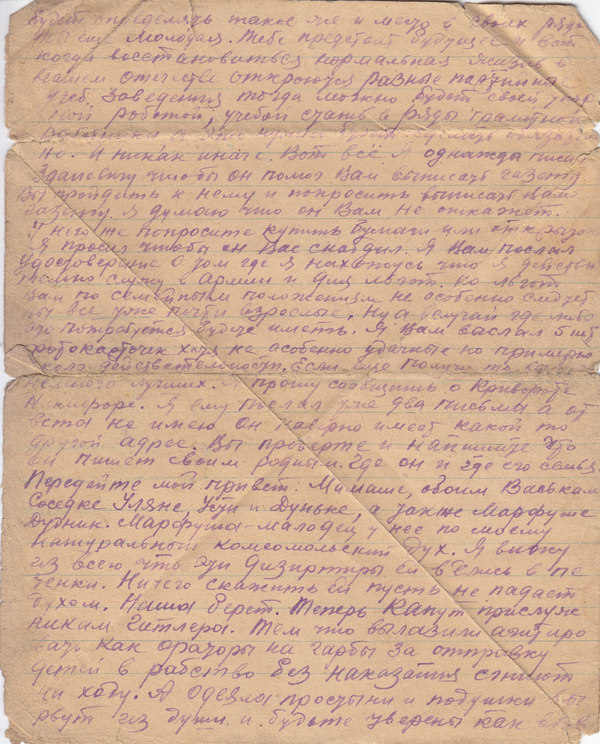 будет определять такое же и место в своих ряда
ты еще молодая. Тебе предстоит будущее и вот
когда восстановиться нормальная жизнь в
нашем отечестве откроются разные
учеб заведения тогда можно будет своей
ной работой, учебой стать в ряды грамотного
но. И никак иначе. Вот всё. Я однажды писал
Здановичу чтобы он помог Вам выписать газету
Вы пройдите к нему и попросите выписать Вам
газету. Я думаю что он Вам не откажет.
У него же попросите купить бумаги или открыток
Я просил чтобы он Вас снабдил. Я Вам послал
удостоверение о том где я нахожусь что я действи
тельно служу в армии и для льгот. Но льгот
Вам по семейным положениям не особенно следует
вы все уже почти взрослые. Ну а в случай где либо
что потребуется будете иметь. Я Вам выслал 5 шт
фотокарточек хотя не особенно удачные но примерно
около действительности. Если еще получу то
немного лучших. Я прошу сообщить о Кривороте
Никифоре. Я ему послал уже два письма а от
вета не имею он наверно имеет какой то
другой адрес. Вы проверте и напишите что
он пишет своим родным. Где он и где его семья.
Передайте мой привет: Мамаше, обоим Васькам
Соседке Уляне, Усти и Дуньке, а также Марфуше
Дудник. Марфуша-молодец у нее по моему
натуральный комсомольский дух. Я вижу
из всего что эти дизиртиры ей въелись в пе
ченки. Ничего скажить ей пусть не падает
духом. Наша берет. Теперь капут прислуж
никам гитлера. Тем что вылазили агитиро
вать как ораторы на гарбы за отправку
детей в рабство без наказания сгниют
на ходу. А одеяла простыни и подушки вы
рвут из души и будьте уверены как